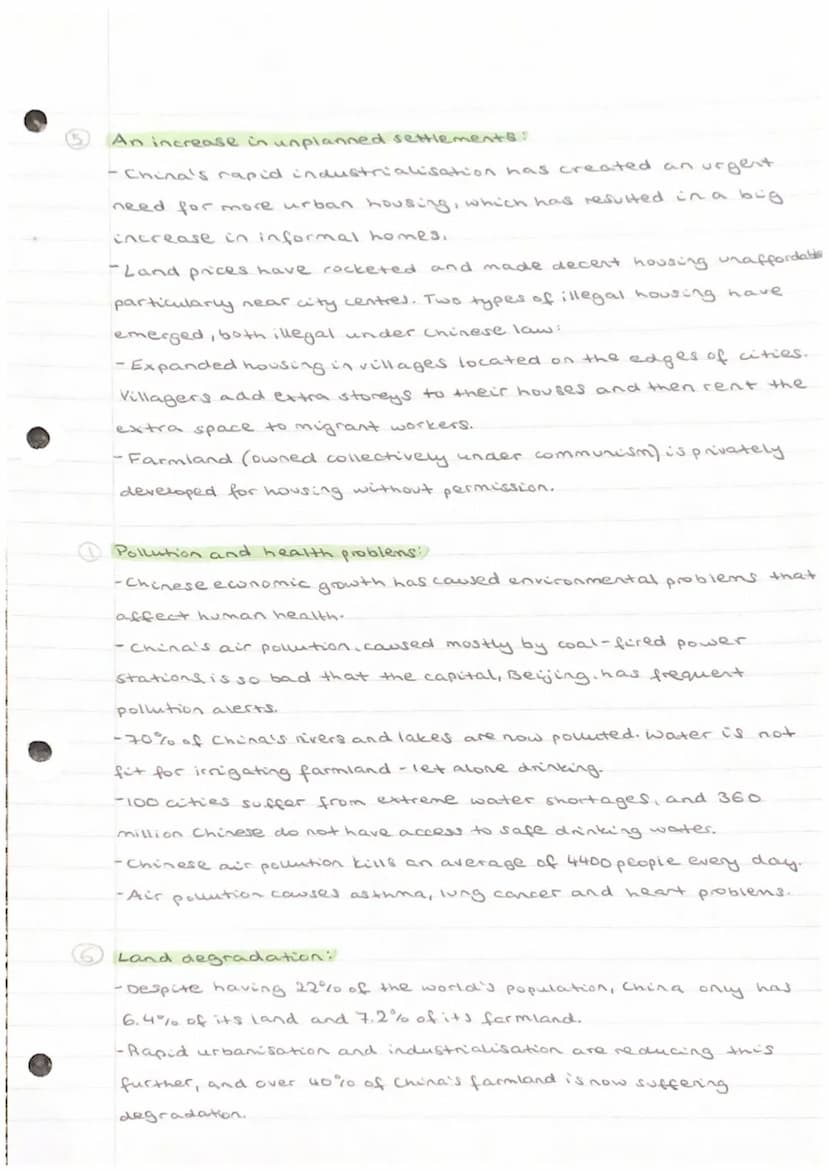 ⑤ An increase in unplanned settlements:
- China's rapid industrialisation has created an urgent
need for more urban housing, which has resulted in a big
increase in informal homes.
- Land prices have rocketed and made decent housing unaffordable
particularly near city centres. Two types of illegal housing have
emerged, both illegal under Chinese law:
- Expanded housing in villages located on the edges of cities.
Villagers add extra storeys to their houses and then rent the
extra space to migrant workers.
- Farmland (owned collectively under communism) is privately
developed for housing without permission.
① Pollution and health problems:
- Chinese economic growth has caused environmental problems that
affect human health.
- China's air pollution, caused mostly by coal-fired power
stations, is so bad that the capital, Beijing, has frequent
pollution alerts.
- 70% of China's rivers and lakes are now polluted. Water is not
fit for irrigating farmland - let alone drinking.
- 100 cities suffer from extreme water shortages, and 360
million Chinese do not have access to safe drinking water.
- Chinese air pollution kills an average of 4400 people every day.
- Air pollution causes asthma, lung cancer and heart problems.
⑥ Land degradation:
- Despite having 22% of the world's population, China only has
6.4% of its land and 7.2% of its farmland.
- Rapid urbanisation and industrialisation are reducing this
further, and over 40% of China's farmland is now suffering
degradation.